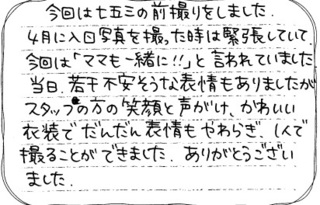 今回は七五三の前撮りをしました.
4月に入口写真を撮った時は緊張していて
今回は「ママも一緒に!!」と言われていました
当日、若干不安そうな表情もありましたが
スタッフの方の笑顔と声がけ、かわいい
衣装でだんだん表情もやわらぎ、1人で
撮ることができました. ありがとうござい
ました.